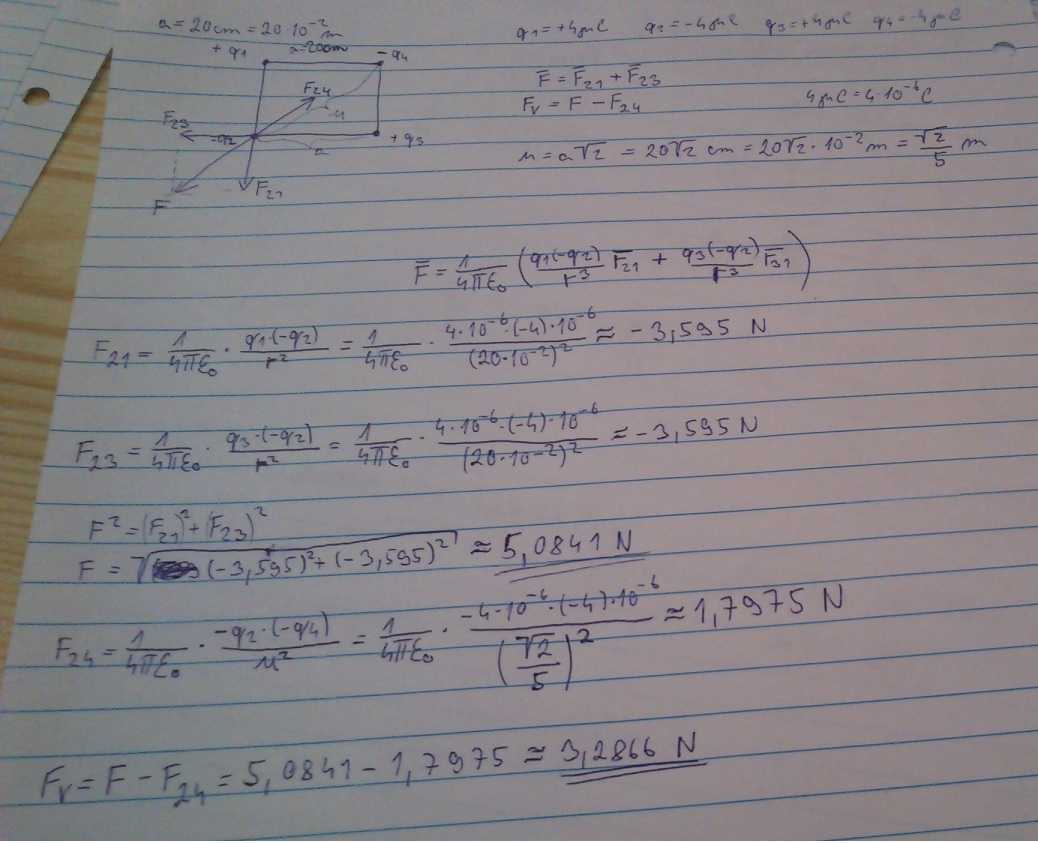 a = 20cm = 20·10⁻² m
q1 = +4μC q2 = -4μC q3 = +4μC q4 = -4μC
+ q1 a=20cm - q4
F̄ = F̄21 + F̄23
Fv = F - F24
4μC = 4·10⁻⁶C
F24
u
F23 -q2 a + q3
u = a√2 = 20√2 cm = 20√2·10⁻² m = √2/5 m
F21
F
F̄ = 1/4πε₀ (q1(-q2)/r³ F̄21 + q3(-q2)/r³ F̄31)
F21 = 1/4πε₀ · q1·(-q2)/r² = 1/4πε₀ · 4·10⁻⁶·(-4)·10⁻⁶/(20·10⁻²)² ≈ -3,595 N
F23 = 1/4πε₀ · q3·(-q2)/r² = 1/4πε₀ · 4·10⁻⁶·(-4)·10⁻⁶/(20·10⁻²)² ≈ -3,595 N
F² = (F21)² + (F23)²
F = √(-3,595)² + (-3,595)² ≈ 5,0841 N
F24 = 1/4πε₀ · -q2·(-q4)/u² = 1/4πε₀ · -4·10⁻⁶·(-4)·10⁻⁶/(√2/5)² ≈ 1,7975 N
Fv = F - F24 = 5,0841 - 1,7975 ≈ 3,2866 N